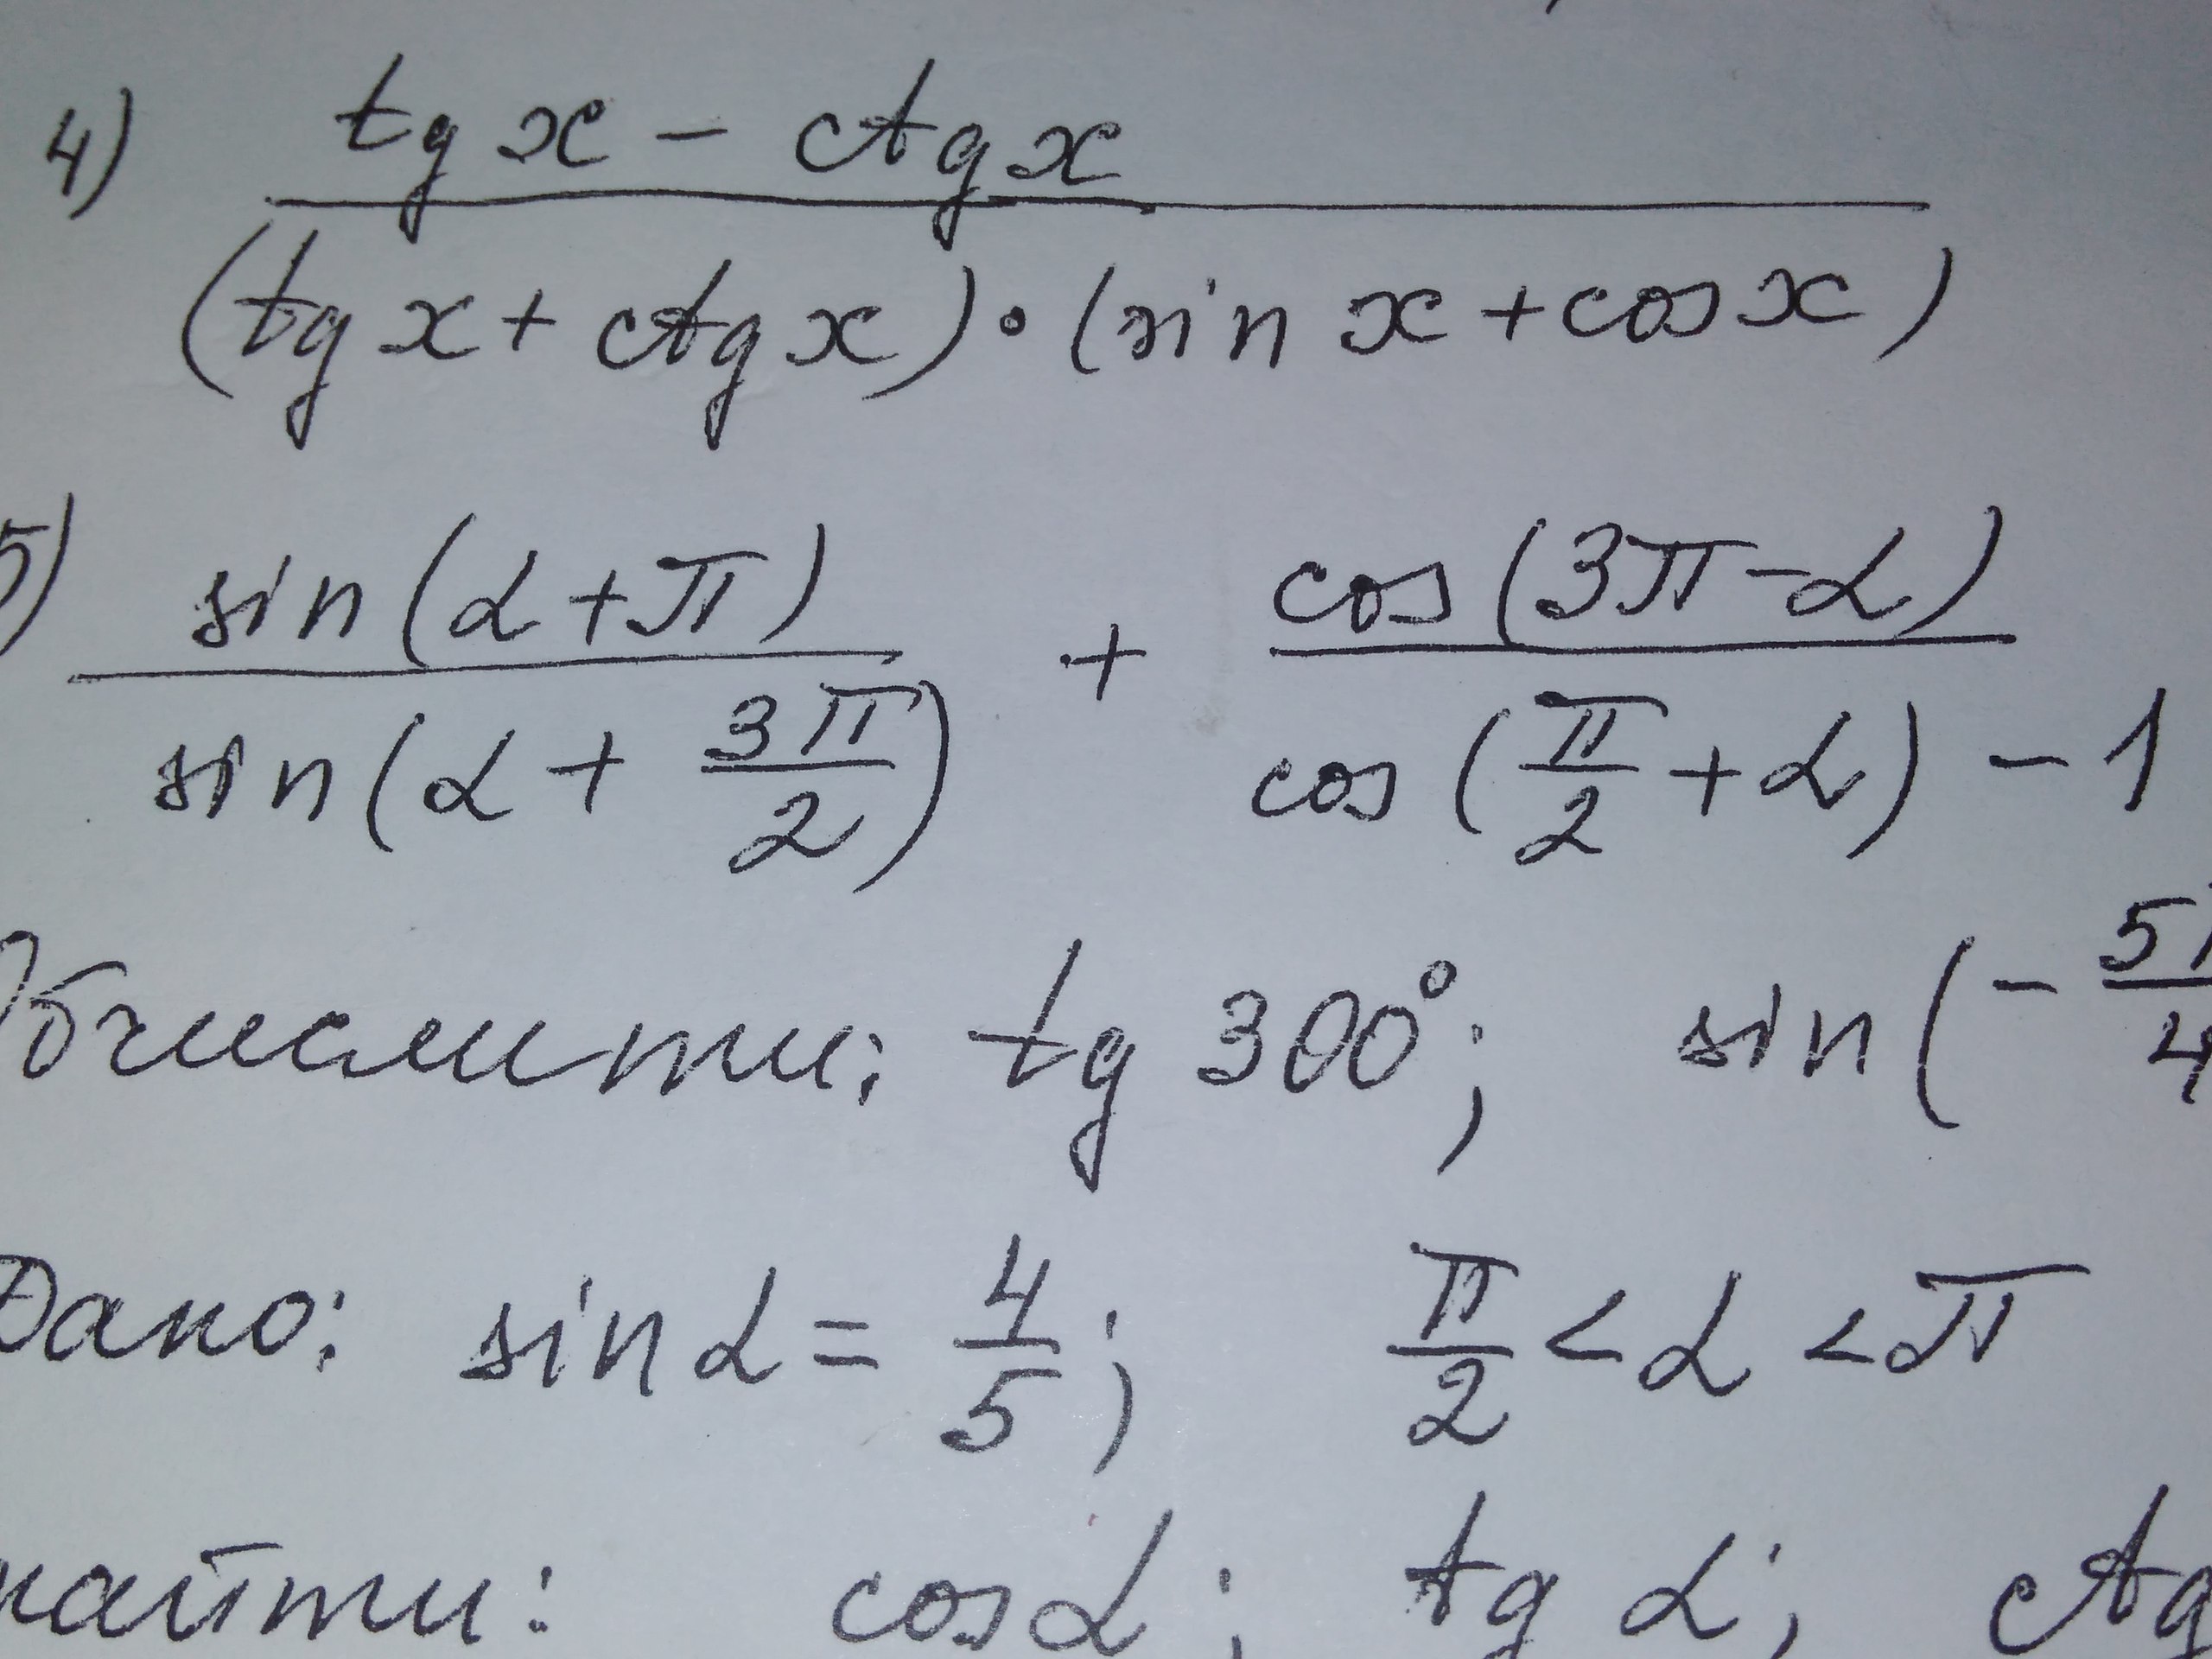 4) (tg x - ctg x) / ((tg x + ctg x) • (sin x + cos x))
5) sin(α + π) / sin(α + 3π/2) + cos(3π - α) / (cos(π/2 + α) - 1)
tg 300°; sin(- 5π/4
Дано: sin α = 4/5; π/2 < α < π
найти: cos α; tg α; ctg